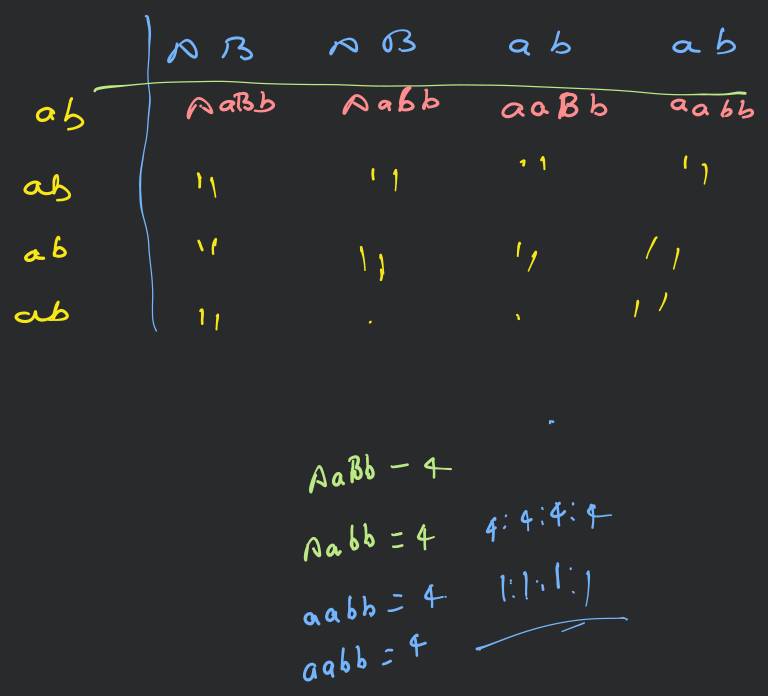 AB AB ab ab
ab AaBb AaBb aaBb aabb
ab " " " "
ab " " " "
ab " . . "
AaBb - 4
Aabb = 4 4:4:4:4
aabb = 4 1:1:1:1
aabb = 4